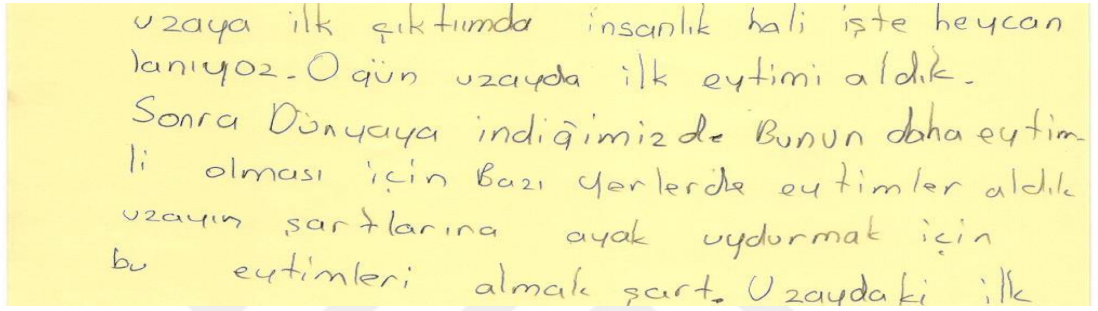 uzaya ilk çıktıımda insanlık hali işte heycan
lanıyoz. O gün uzayda ilk eytimi aldık.
Sonra Dünyaya indiğimizde Bunun daha eytim-
li olması için Bazı yerlerde eytimler aldık
uzayın şartlarına ayak uydurmak için
bu eytimleri almak şart. Uzaydaki ilk